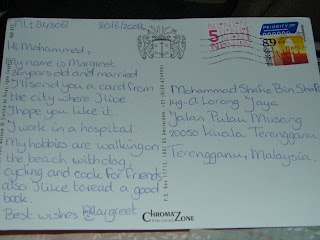 Hi Mohammed,
My name is Margreet
years old and married
I'll send you a card from
the city where I live
I hope you like it
I work in a hospital
My hobbies are walking on
the beach with dog
cycling and cook for friends
also I love to read a good
book.
Best wishes Margreet
PRIORITY
5
Mohammad Shafie Bin
Lorong Jaya
Jalan Pulau Musang
20050 Kuala Terengganu
Terengganu, Malaysia.
CHROMAZONE